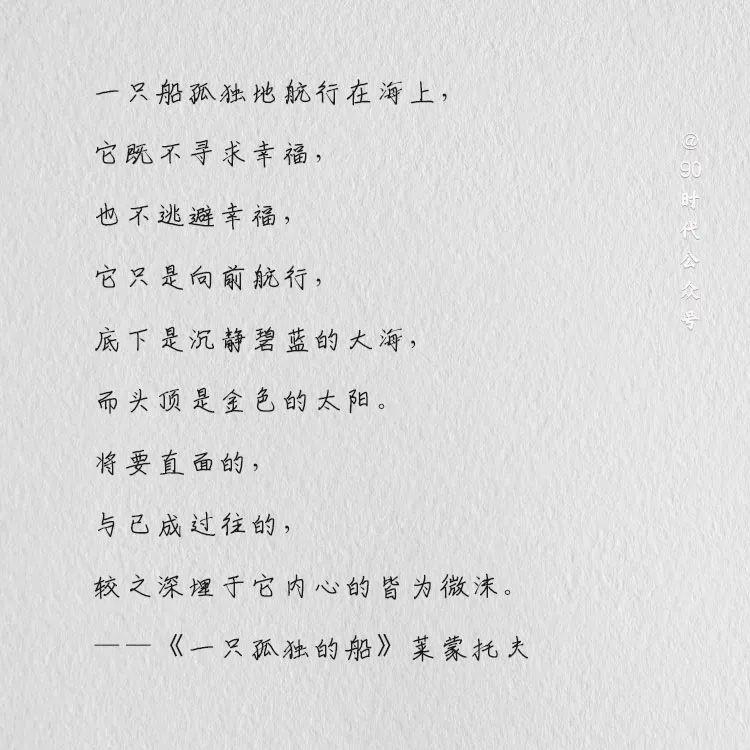 一只船孤独地航行在海上，
它既不寻求幸福，
也不逃避幸福，
它只是向前航行，
底下是沉静碧蓝的大海，
而头顶是金色的太阳。
将要直面的，
与已成过往的，
较之深埋于它内心的皆为微沫。
——《一只孤独的船》莱蒙托夫
@90时代公众号